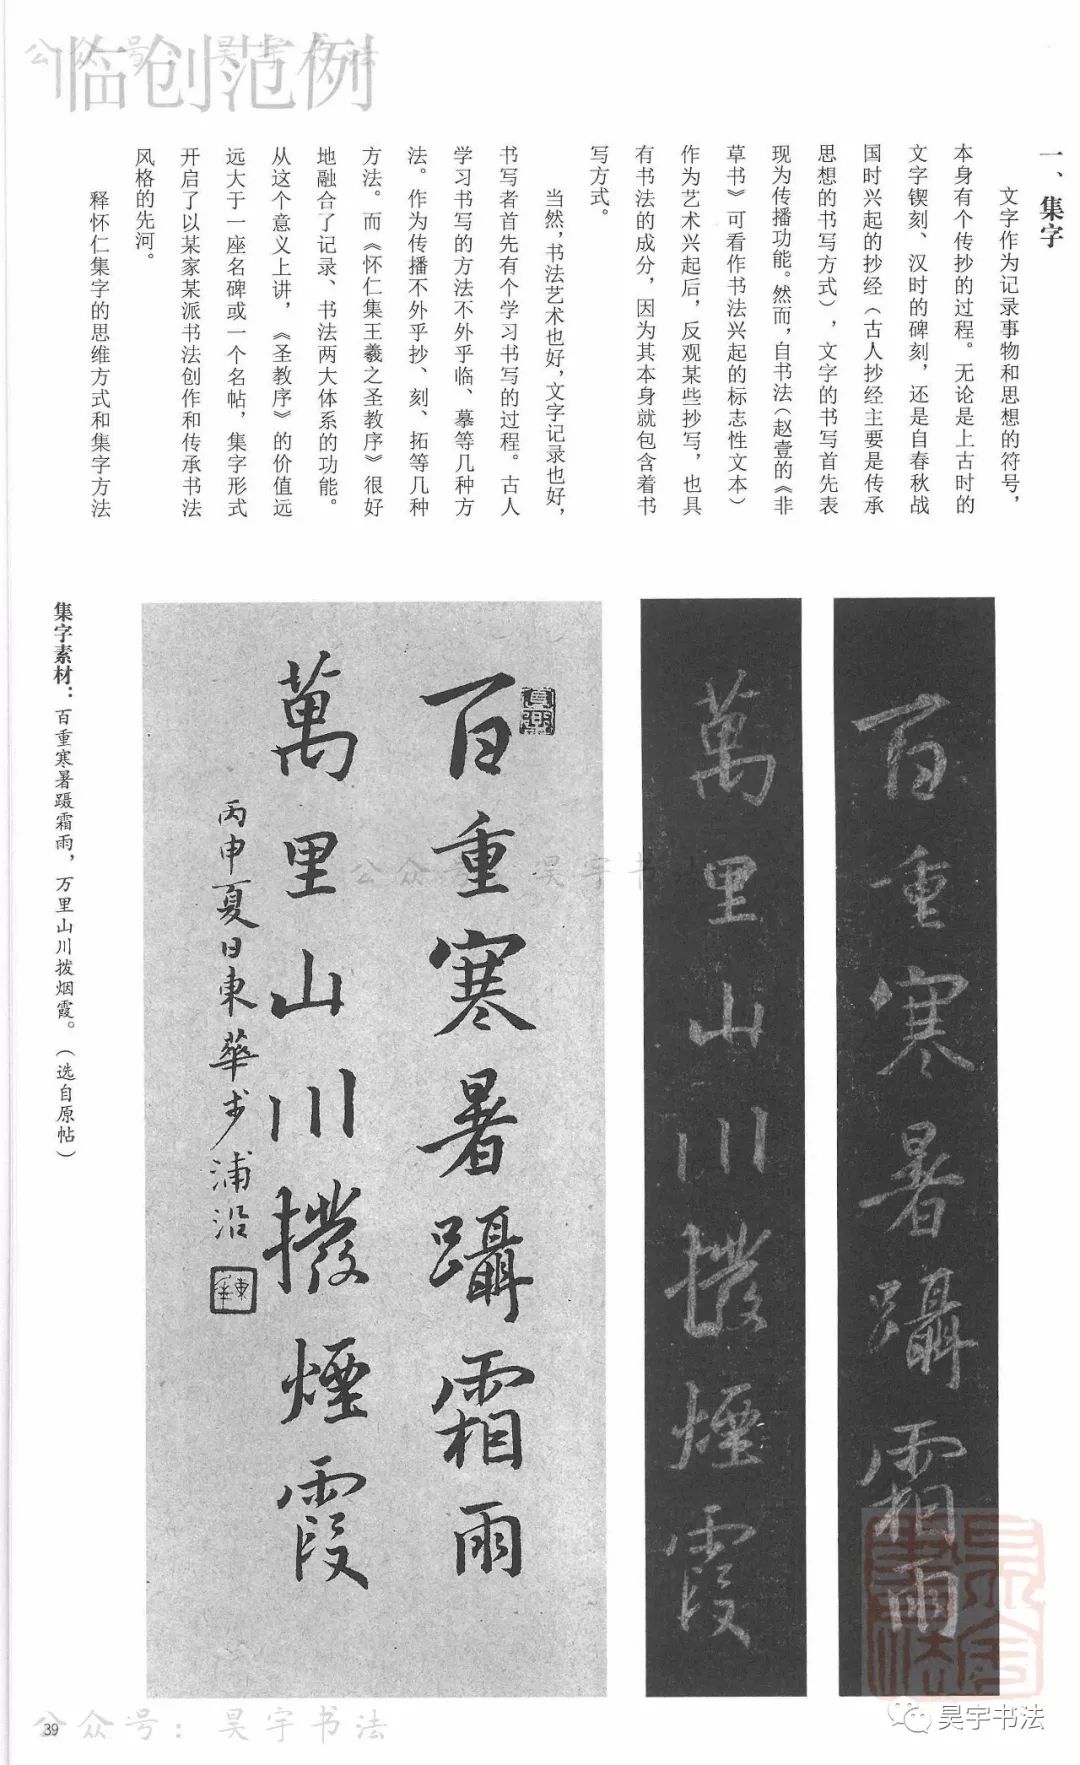 临创范例
公众号：昊宇书法
一、集字
文字作为记录事物和思想的符号，
本身有个传抄的过程。无论是上古时的
文字锲刻、汉时的碑刻，还是自春秋战
国时兴起的抄经（古人抄经主要是传承
思想的书写方式），文字的书写首先表
现为传播功能。然而，自书法（赵壹的《非
草书》可看作书法兴起的标志性文本）
作为艺术兴起后，反观某些抄写，也具
有书法的成分，因为其本身就包含着书
写方式。
当然，书法艺术也好，文字记录也好，
书写者首先有个学习书写的过程。古人
学习书写的方法不外乎临、摹等几种方
法。作为传播不外乎抄、刻、拓等几种
方法。而《怀仁集王羲之圣教序》很好
地融合了记录、书法两大体系的功能。
从这个意义上讲，《圣教序》的价值远
远大于一座名碑或一个名帖，集字形式
开启了以某家某派书法创作和传承书法
风格的先河。
释怀仁集字的思维方式和集字方法
百重寒暑躡霜雨
萬里山川撥煙霞
百重寒暑躡霜雨
萬里山川撥煙霞
丙申夏日東華书浦沿
公众号：昊宇书法
集字素材：百重寒暑蹑霜雨，万里山川拨烟霞。（选自原帖）
39
公众号：昊宇书法
昊宇书法